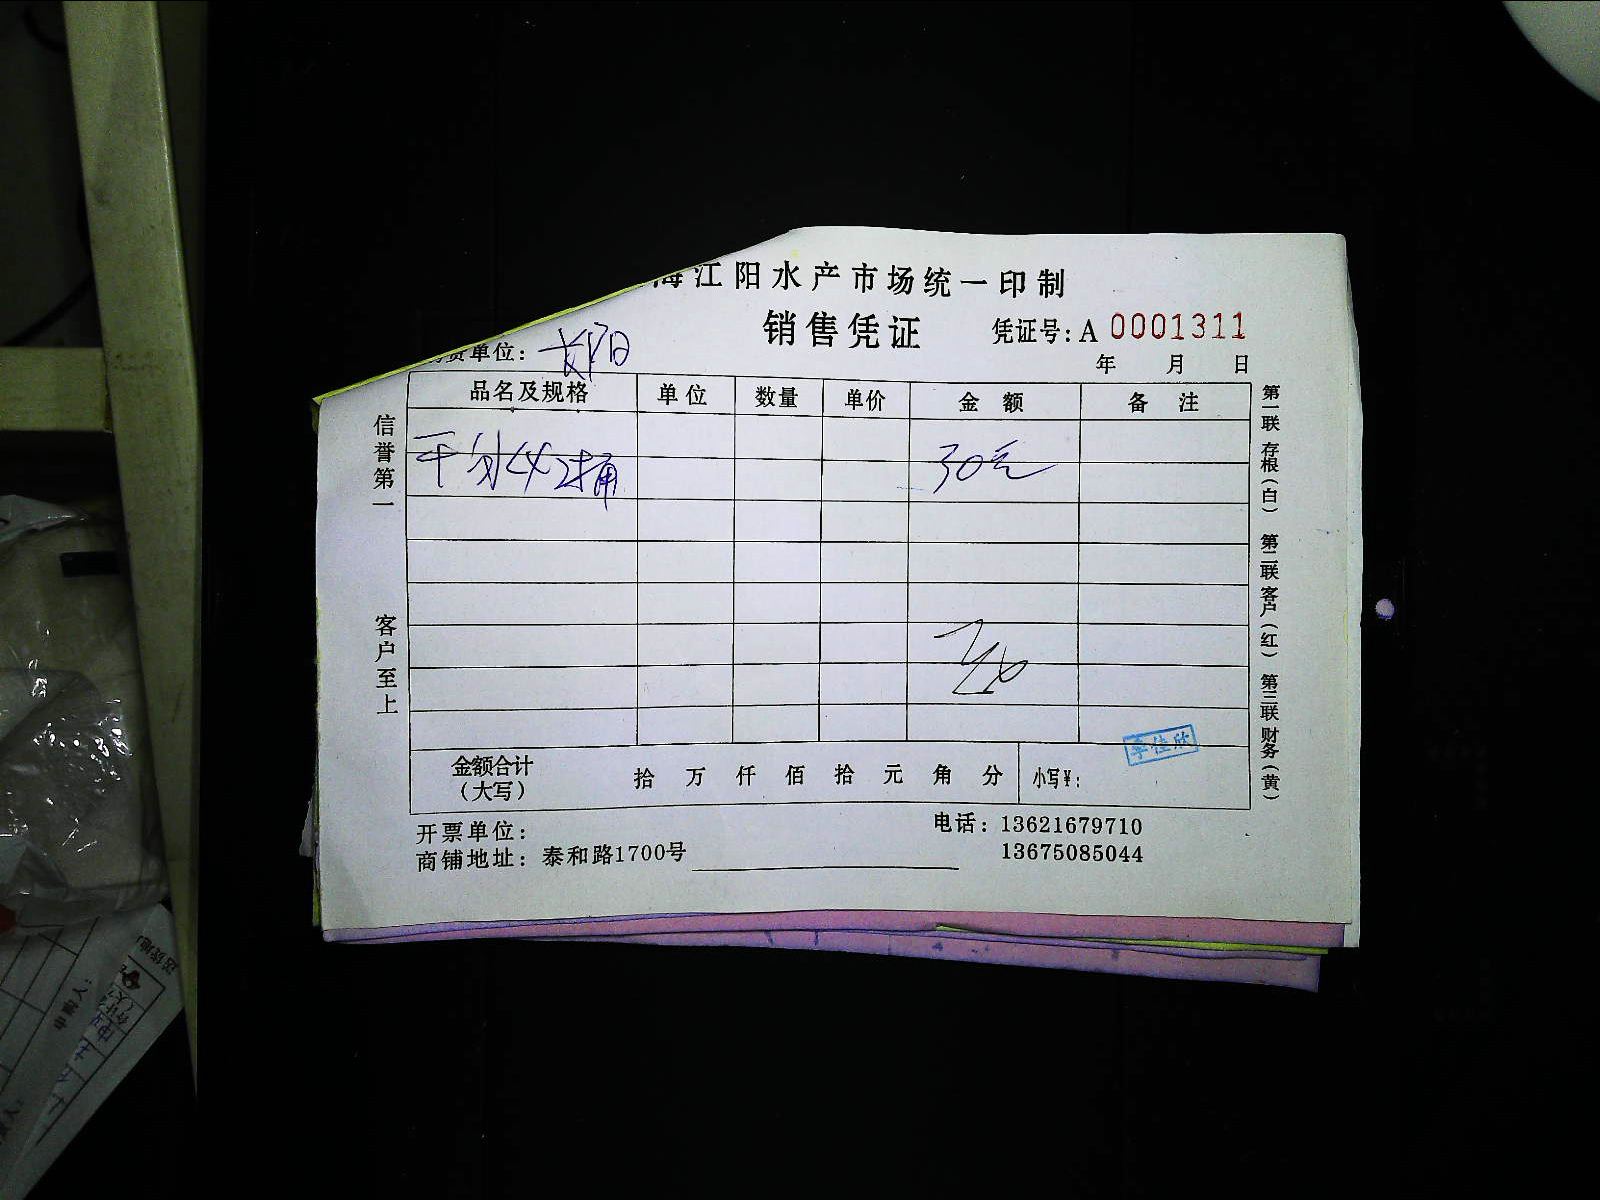 海江阳水产市场统一印制
销售凭证
凭证号:A 0001311
货单位: 长阳
年 月 日
品名及规格 单位 数量 单价 金额 备注
30元
金额合计(大写) 拾 万 仟 佰 拾 元 角 分 小写¥:
李佳欣
开票单位:
电话: 13621679710
商铺地址: 泰和路1700号
13675085044
信誉第一 客户至上
第一联 存根(白) 第二联 客户(红) 第三联 财务(黄)